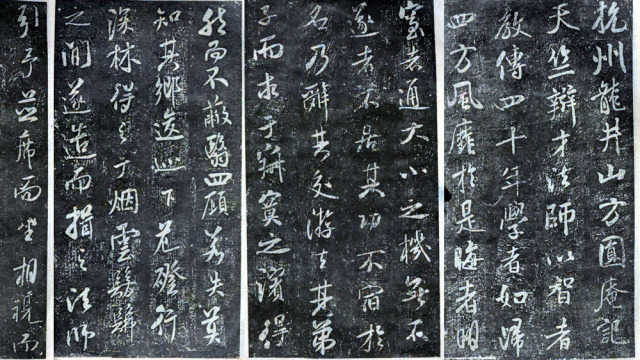 杭州龍井山方圓庵記
天竺辯才法師以智者
教傳四十年學者如歸
四方風靡於是晦者明
窒者通大小之機無不
遂者不居其功不宿於
名乃辭其交游去其弟
子而求于寂寞之濱得
然而不蔽翳四顧若失莫
知其鄉逡巡下危磴行
深林得之于烟雲髣髴
之間遂造而揖之法師
引予並席而坐相視而